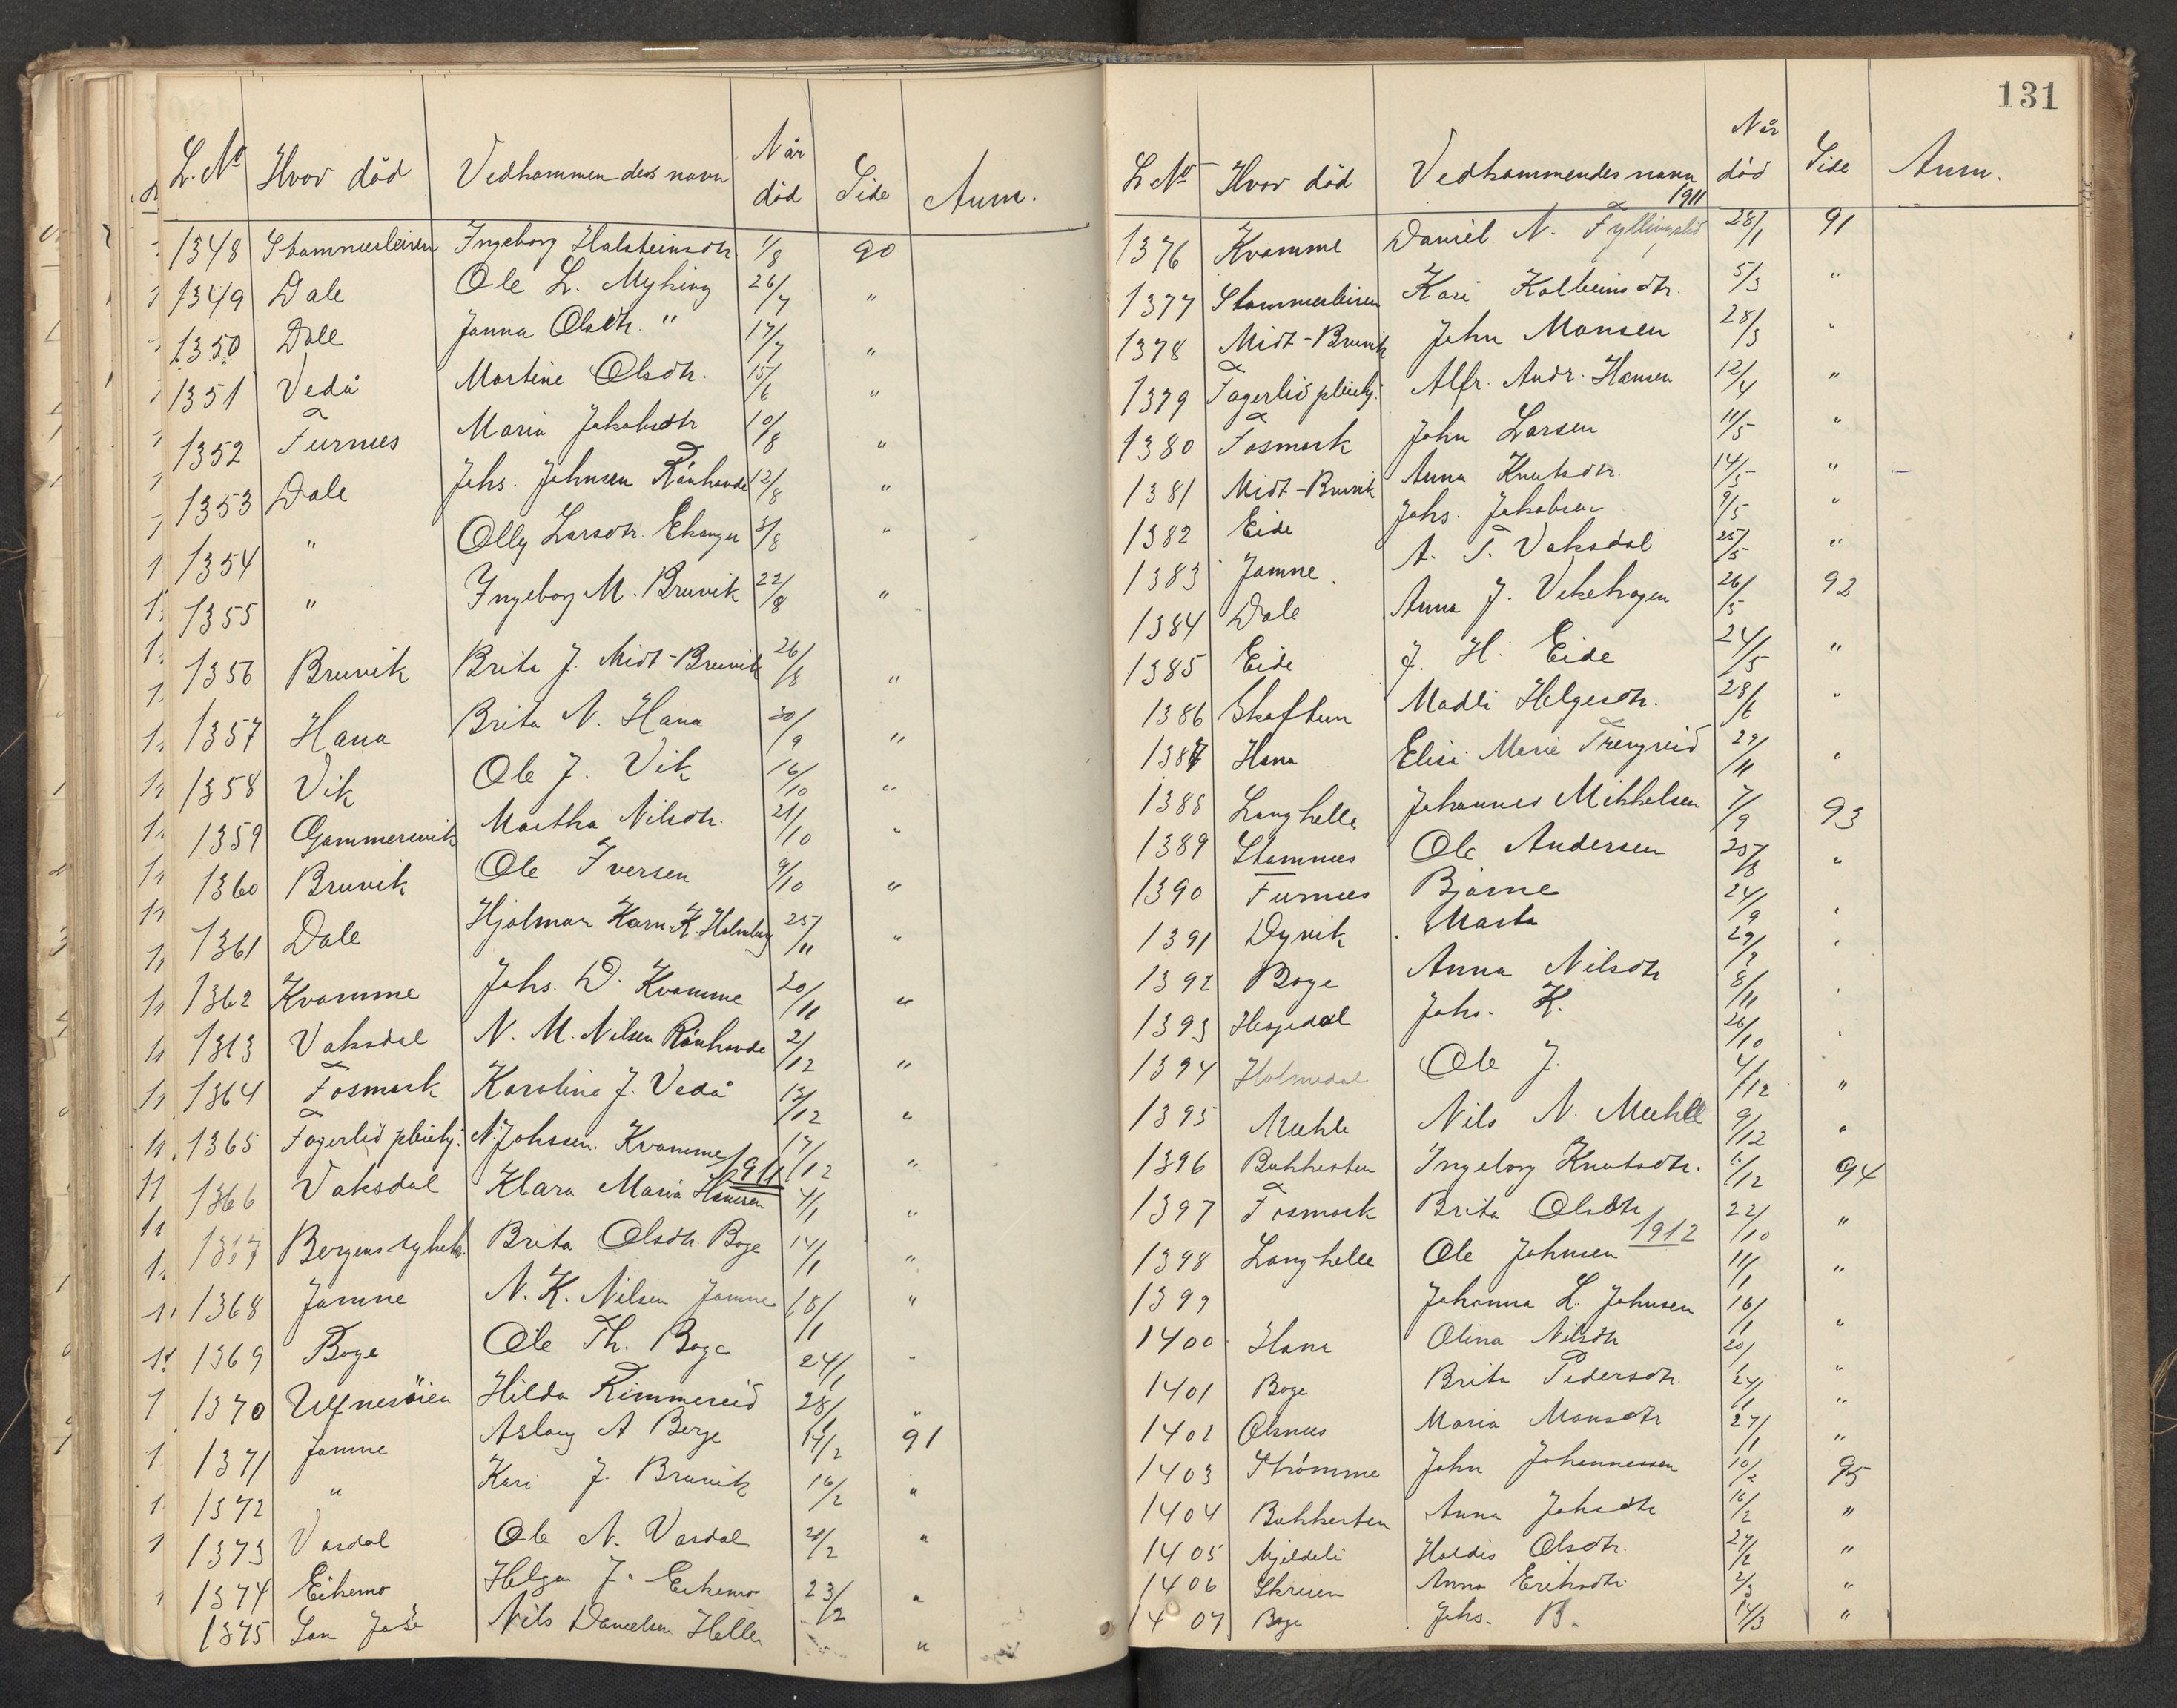 L. No Hvor död Vedkommendes navn Når död Side Anm.
1348 Stamnesleiren Ingeborg Halsteinsdtr 1/8 90
1349 Dale Ole L. Myking 26/7 "
1350 Dale Janna Olsdtr. " 17/7 "
1351 Vedå Martine Olsdtr. 15/6 "
1352 Furnes Maria Jakobsdtr 10/8 "
1353 Dale Johs. Johnsen Rånhovde 12/8 "
1354 " Olly Larsdtr. Ekanger 3/8 "
1355 " Ingeborg M. Bruvik 22/8 "
1356 Bruvik Brita J. Midt-Bruvik 26/8 "
1357 Hana Brita N. Hana 30/9 "
1358 Vik Ole J. Vik 16/10 "
1359 Gammersvik Martha Nilsdtr. 21/10 "
1360 Bruvik Ole Iversen 9/10 "
1361 Dale Hjalmar Karn. K. Holmberg 25/11 "
1362 Kvamme Johs. D. Kvamme 20/11 "
1363 Vaksdal N. M. Nilsen Rånhovde 2/12 "
1364 Fosmark Karoline J. Vedå 13/12 "
1365 Fagerlid pleiehj. N. Johssen. Kvamme 17/12 "
1911
1366 Vaksdal Klara Maria Hansen 4/1 "
1367 Bergens sykeh. Brita Olsdtr. Boge 14/1 "
1368 Jamne N. K. Nilsen Jamne 18/1 "
1369 Boge Ole Th. Boge 24/1 "
1370 Ulfnesöien Hilda Rimmereid 28/1 "
1371 Jamne Aslaug A Berge 14/2 91
1372 " Kari J. Bruvik 16/2 "
1373 Vardal Ole N. Vardal 21/2 "
1374 Eikemo Helga J. Eikemo 23/2 "
1375 San José Nils Danielsen Helle "
131
L No Hvor död Vedkommendes navn Når död Side Anm.
1911
1376 Kvamme Daniel N. Fyllingslid 28/1 91
1377 Stamnesleiren Kari Kolbeinsdtr. 5/3 "
1378 Midt-Bruvik John Monsen 28/3 "
1379 Fagerlid pleiehj. Alfr. Andr. Hansen 12/4 "
1380 Fosmark John Larsen 11/5 "
1381 Midt-Bruvik Anna Knutsdtr. 14/5 "
1382 Eide Johs. Jakobsen 9/5 "
1383 Jamne. A. T. Vaksdal 25/5 "
1384 Dale Anna J. Vikehagen 26/5 92
1385 Eide J. H. Eide 24/5 "
1386 Skaftun Madli Helgesdtr. 28/6 "
1387 Hana Elisi Marie Trengreid 29/11 "
1388 Langhelle Johannes Mikkelsen 7/9 93
1389 Stamnes Ole Andersen 25/8 "
1390 Furnes Bjarne 24/9 "
1391 Dyvik Marta 29/9 "
1392 Boge Anna Nilsdtr 8/11 "
1393 Hesjedal Johs. K. 26/10 "
1394 Holmedal Ole J. 4/12 "
1395 Mæhle Nils N. Mæhle 9/12 "
1396 Bukkesten Ingeborg Knutsdtr. /12 94
1397 Fosmark Brita Olsdtr 22/10 "
1912
1398 Langhelle Ole Johnsen 11/1 "
1399 Johanna L. Johnsen 16/1 "
1400 Hana Olina Nilsdtr 20/1 "
1401 Boge Brita Pedersdtr. 24/1 "
1402 Olsnes Maria Monsdtr 27/1 "
1403 Strömme John Johannessen 10/2 95
1404 Bukkesten Anna Johsdtr 16/2 "
1405 Mjeldeli Haldis Olsdtr. 27/2 "
1406 Skreien Anna Eriksdtr. 2/3 "
1407 Boge Johs. B. 14/3 "